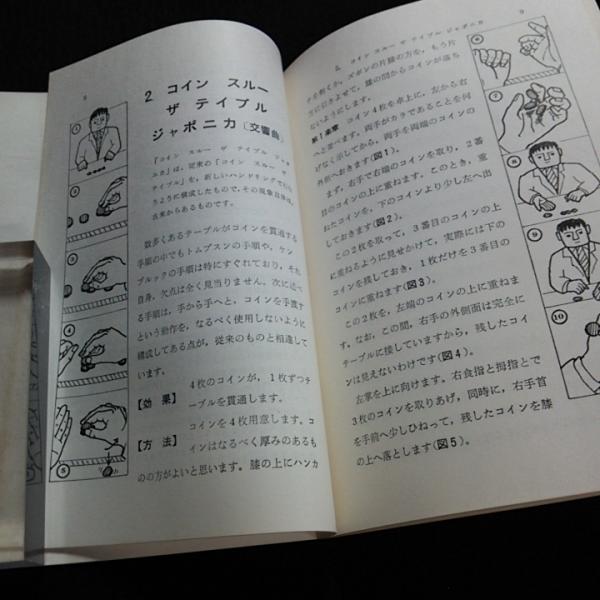 8
2 コイン スルー
ザ テイブル
ジャポニカ〔交響曲〕
「コイン スルー ザ テイブル ジャポ
ニカ」は、従来の「コイン スルー ザ
テイブル」を、新しいハンドリングで行な
うように構成したもので、その現象自体は、
古来からあるものです。
数多くあるテーブルがコインを貫通する
手順の中でもトムプスンの手順や、ケン
ブルックの手順は特にすぐれており、それ
自身、欠点は全く見当りません。次に述べ
る手順は、手から手へと、コインを手渡す
という動作を、なるべく使用しないように
構成してある点が、従来のものと相違して
います。
【効 果】 4枚のコインが、1枚ずつテ
ーブルを貫通します。
【方 法】 コインを4枚用意します。コ
インはなるべく厚みのあるも
のの方がよいと思います。膝の上にハンカ
5
9
コイン スルー ザ テイブル ジャポニカ
チを割くか、ズボンの片膝の方を、もう片
方に引きよせて、膝の間からコインが落ち
ないようにします。
第1楽章 コイン4枚を卓上に、左から右
へと並べます。両手がカラであることを何
げなく示してから、両手を両端のコインの
外側へおきます(図1)。
まず、右手で右端のコインを取り、2番
目のコインの上に重ねます。このとき、重
ねたコインを、下のコインより少し左へ出
しておきます(図2)。
この2枚を取って、3番目のコインの上
に重ねるように見せかけて、実際には下の
コインを残しておき、1枚だけを3番目の
コインに重ねます(図3)。
この2枚を、左端のコインの上に重ねま
す。なお、この間、右手の外側面は完全に
テーブルに接していますから、残したコイ
ンは見えないわけです(図4)。
左掌を上に向けます。右食指と拇指とで
3枚のコインを取りあげ、同時に、右手首
を手前へ少しひねって、残したコインを膝
の上へ落とします(図5)。
6
7
8
9
10